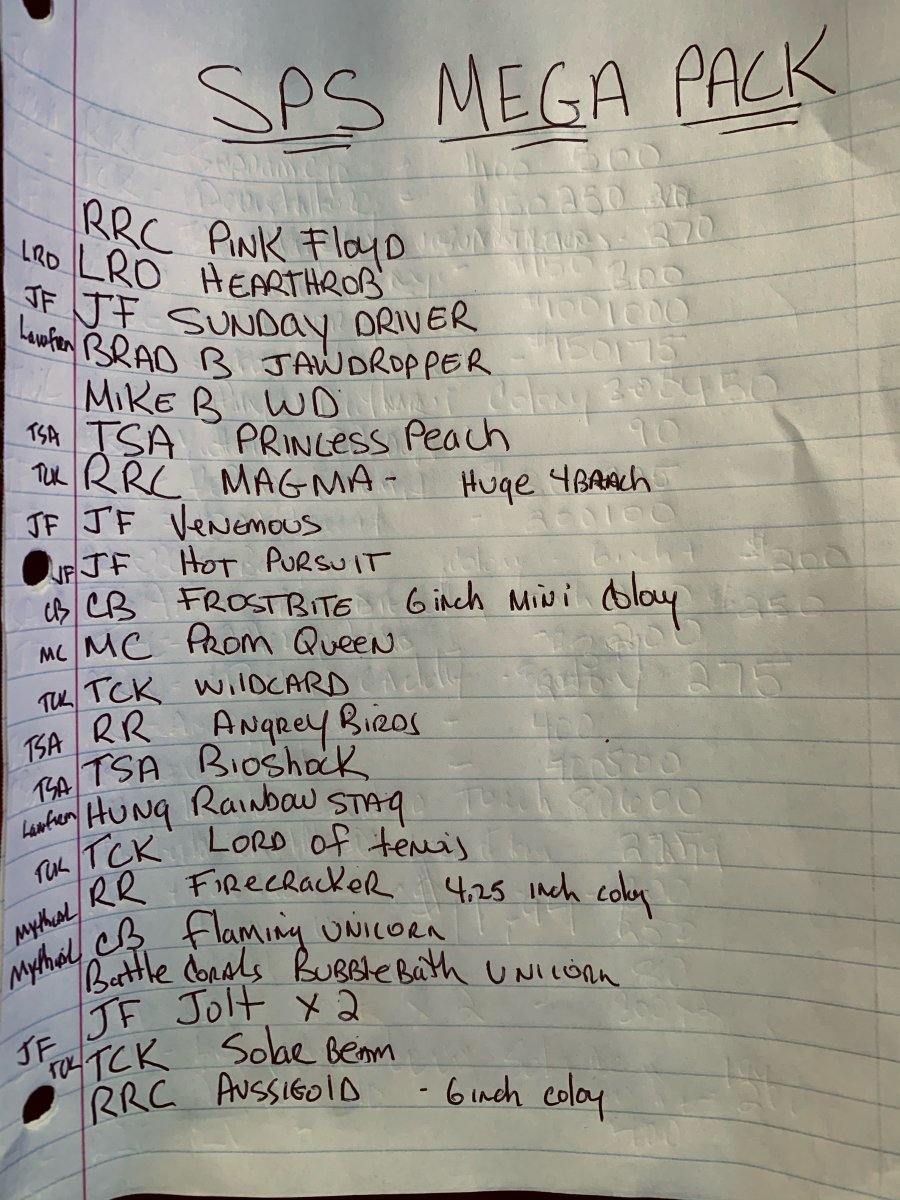 SPS MEGA PACK
RRC PINK Floyd
LRD LRD HEARTHROB
JF JF SUNDAY DRIVER
BRAD B JAWDROPPER
MIKE B WD
TSA TSA PRINCESS Peach
TCK RRC MAGMA - Huge 4
JF JF VENEMOUS
JF JF HOT PURSUIT
CB CB FROSTBITE 6 inch MiNi Colony
MC MC PROM QUEEN
TCK TCK WilDCARD
TSA RR ANgREY BIRDS
TSA TSA BioShock
HUNg Rainbow STAg
TCK TCK LORD of tennis
RR FiRECRACkeR 4.25 inch colony
Mythical CB flaming UNICORN
Mythical Battle Corals BUBBleBath UNICORN
JF JF Jolt x 2
TCK TCK Solar Beam
RRC AUSSIGOlD - 6 inch colony